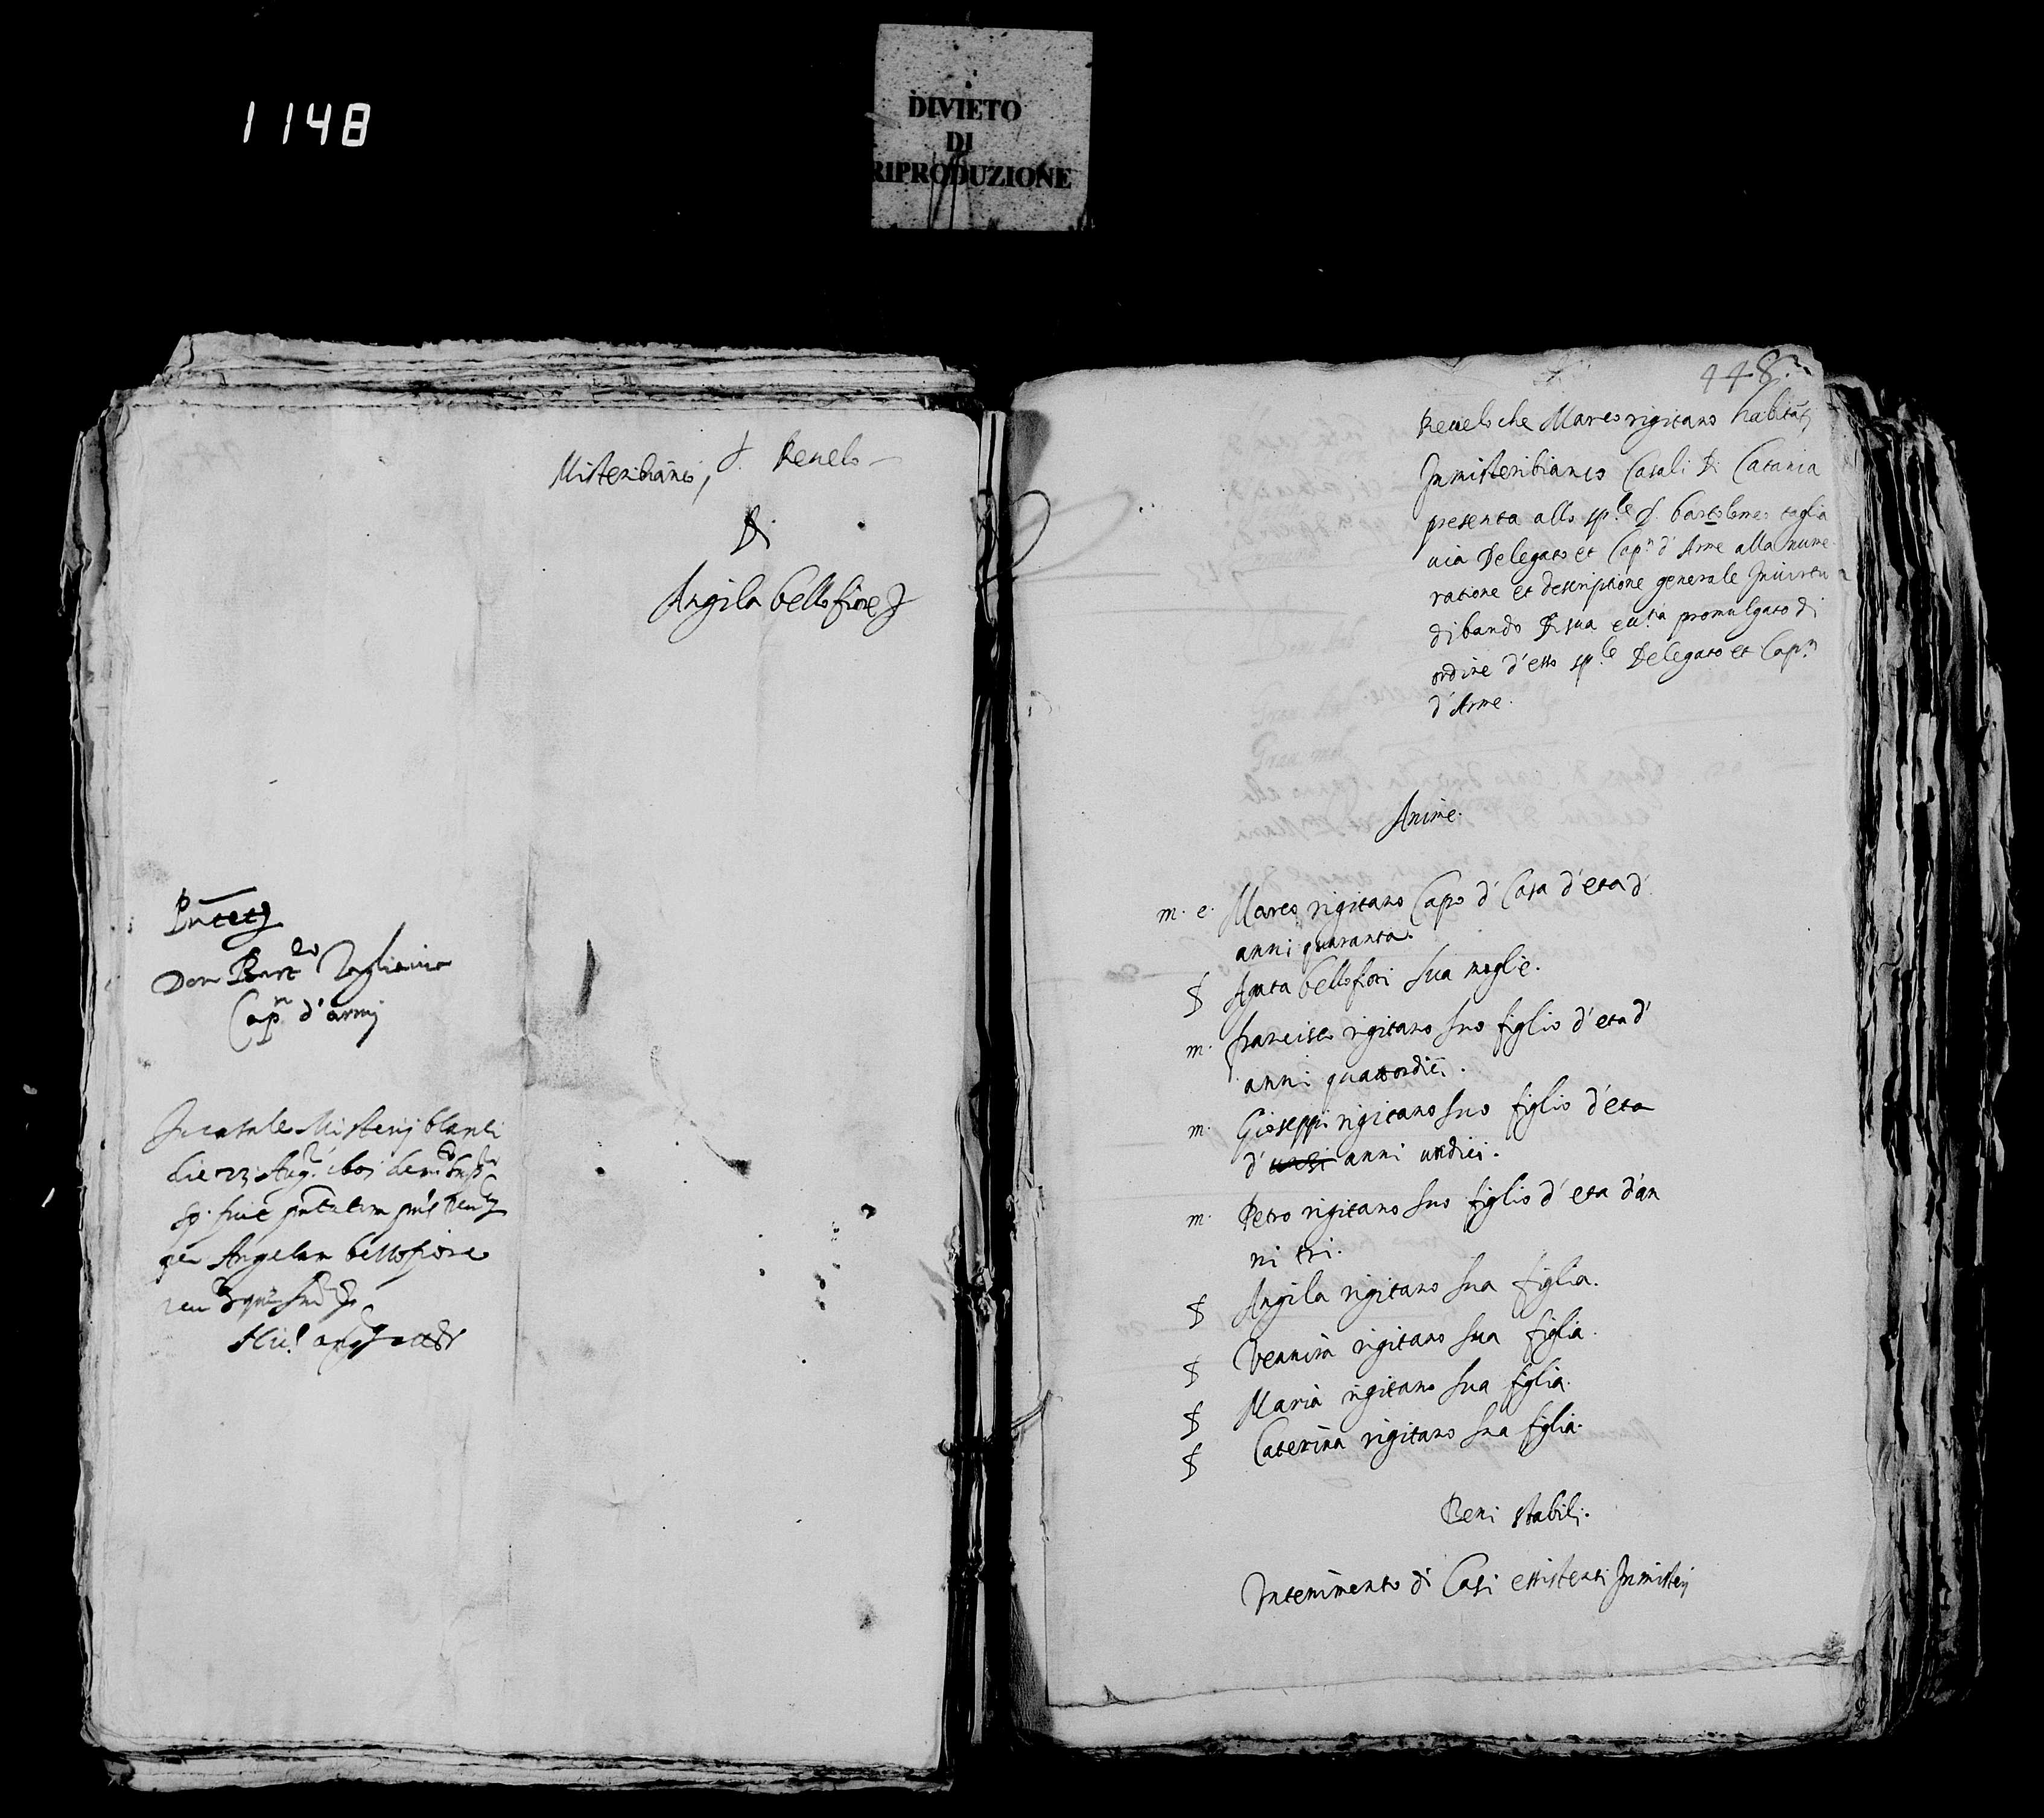 1148
DIVIETO
DI
RIPRODUZIONE
Misteribianco, Revelo
Di
Angila bellofiore
Don Bart.eo Tagliavia
Cap.n d'armi
In casale Misterij blanci
die 23 Aug.
per Angelam bellofiore
448
Revelo che Marco rigitano habitāti
In misteribianco Casali Di Catania
presenta allo sp.le d. bartolomeo taglia
via Delegato et Cap.n d'Arme alla nume
ratione et descriptione generale In virtu
di bando Di sua ecc.tia promulgato di
ordine d'esso sp.le Delegato et Cap.n
d'Arme.
Anime.
m. e. Marco rigitano Capo d' Casa d'eta d'
anni quaranta.
f Agata bellofiori sua moglie.
m. francisco rigitano suo figlio d'eta d'
anni quattordici.
m. Gioseppi rigitano suo figlio d'eta
d' anni undici.
m. Petro rigitano suo figlio d'eta d'an
ni tri.
f Angila rigitano sua figlia.
f Vennira rigitano sua figlia.
f Maria rigitano sua figlia.
f Caterina rigitano sua figlia.
Beni stabili.
Intenimento di Casi essistenti In misterij